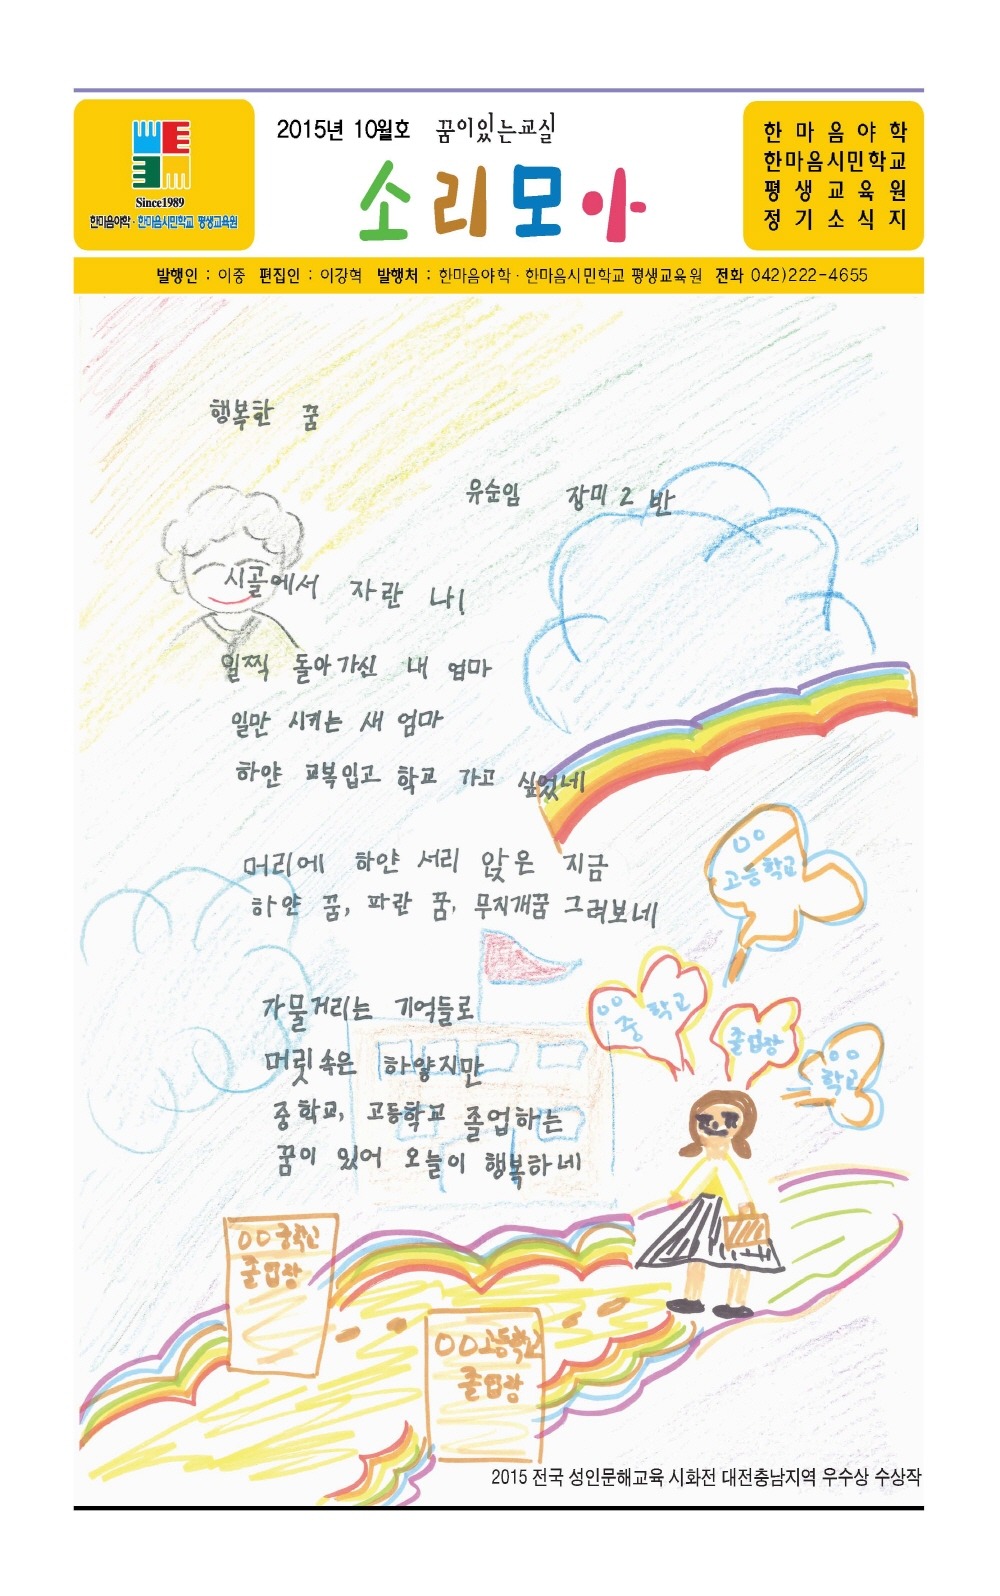 2015년 10월호 꿈이있는교실
소리모아
Since1989
한마음야학·한마음시민학교 평생교육원
한마음야학
한마음시민학교
평생교육원
정기소식지
발행인 : 이중 편집인 : 이강혁 발행처 : 한마음야학·한마음시민학교 평생교육원 전화 042)222-4655
행복한 꿈
유순임 장미 2 반
시골에서 자란 나!
일찍 돌아가신 내 엄마
일만 시키는 새 엄마
하얀 교복입고 학교 가고 싶었네
머리에 하얀 서리 앉은 지금
하얀 꿈, 파란 꿈, 무지개꿈 그려보네
가물거리는 기억들로
머릿속은 하얗지만
중학교, 고등학교 졸업하는
꿈이 있어 오늘이 행복하네
○○
고등학교
○○
중학교
졸업장
○○
학교
○○중학교
졸업장
○○고등학교
졸업장
2015 전국 성인문해교육 시화전 대전충남지역 우수상 수상작